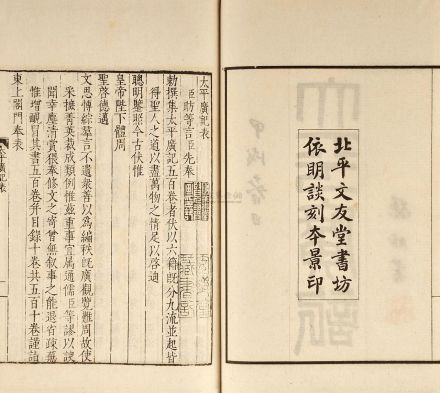 北平文友堂書坊
依明談刻本景印
太平廣記表
臣昉等言臣先奉
勅撰集太平廣記五百卷者伏以六籍既分九流並起皆
得聖人之道以盡萬物之情足以啓迪
聰明鑒照今古伏惟
皇帝陛下體周
聖啓德邁
文思博綜羣言不遺衆善以爲編秩既廣觀覽難周故使
采摭菁英裁成類例惟兹重事宜屬通儒臣等謬以諛
聞幸塵清賞猥奉修文之寄曾無叙事之能退省疎蕪
惟增靦冒其書五百卷并目録十卷共五百十卷謹詣
東上閤門奉表